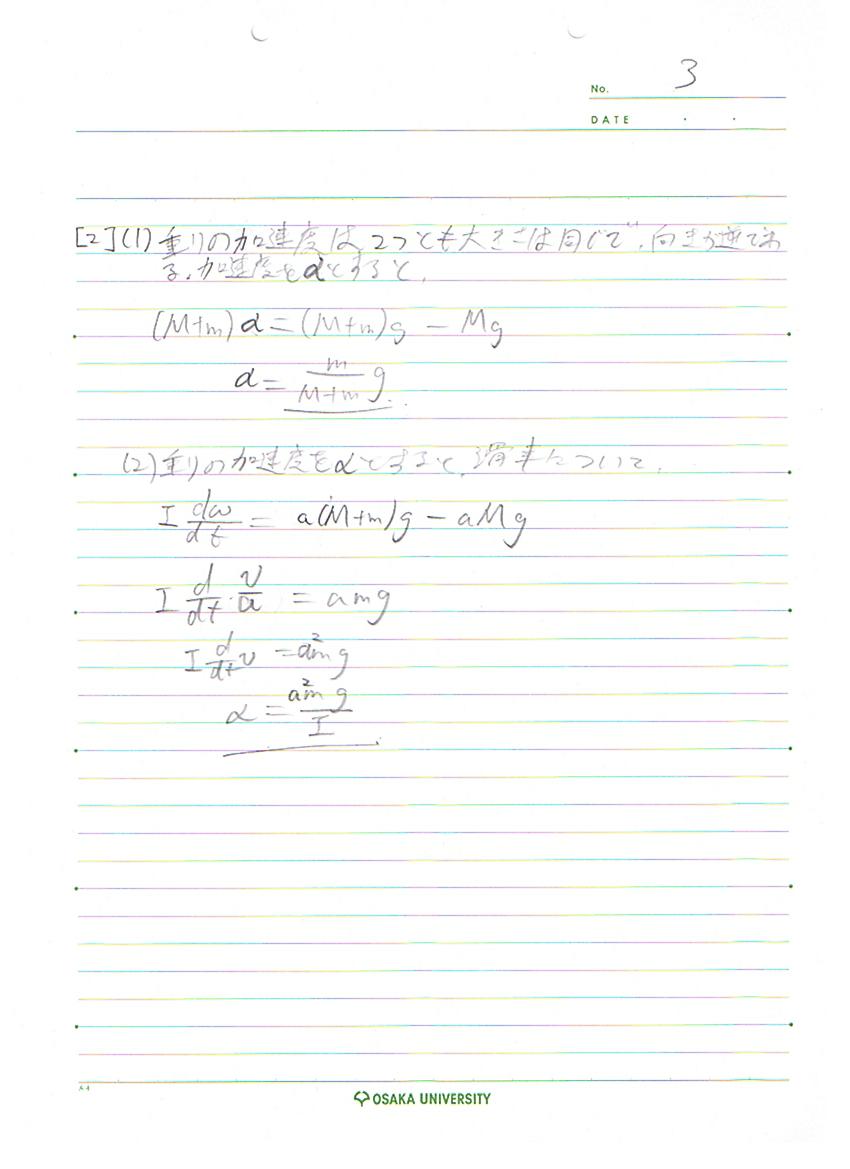 No. 3
DATE . .
[2](1)重りの加速度は2つとも大きさは同じで、向きが逆であ
る。加速度をαとすると、
(M+m)α=(M+m)g − Mg
α= m/(M+m) g
(2)重りの加速度をαとすると、滑車について、
I dω/dt = a(M+m)g − aMg
I d/dt · v/a = amg
I d/dt v = a²mg
α = a²mg/I
A4
OSAKA UNIVERSITY